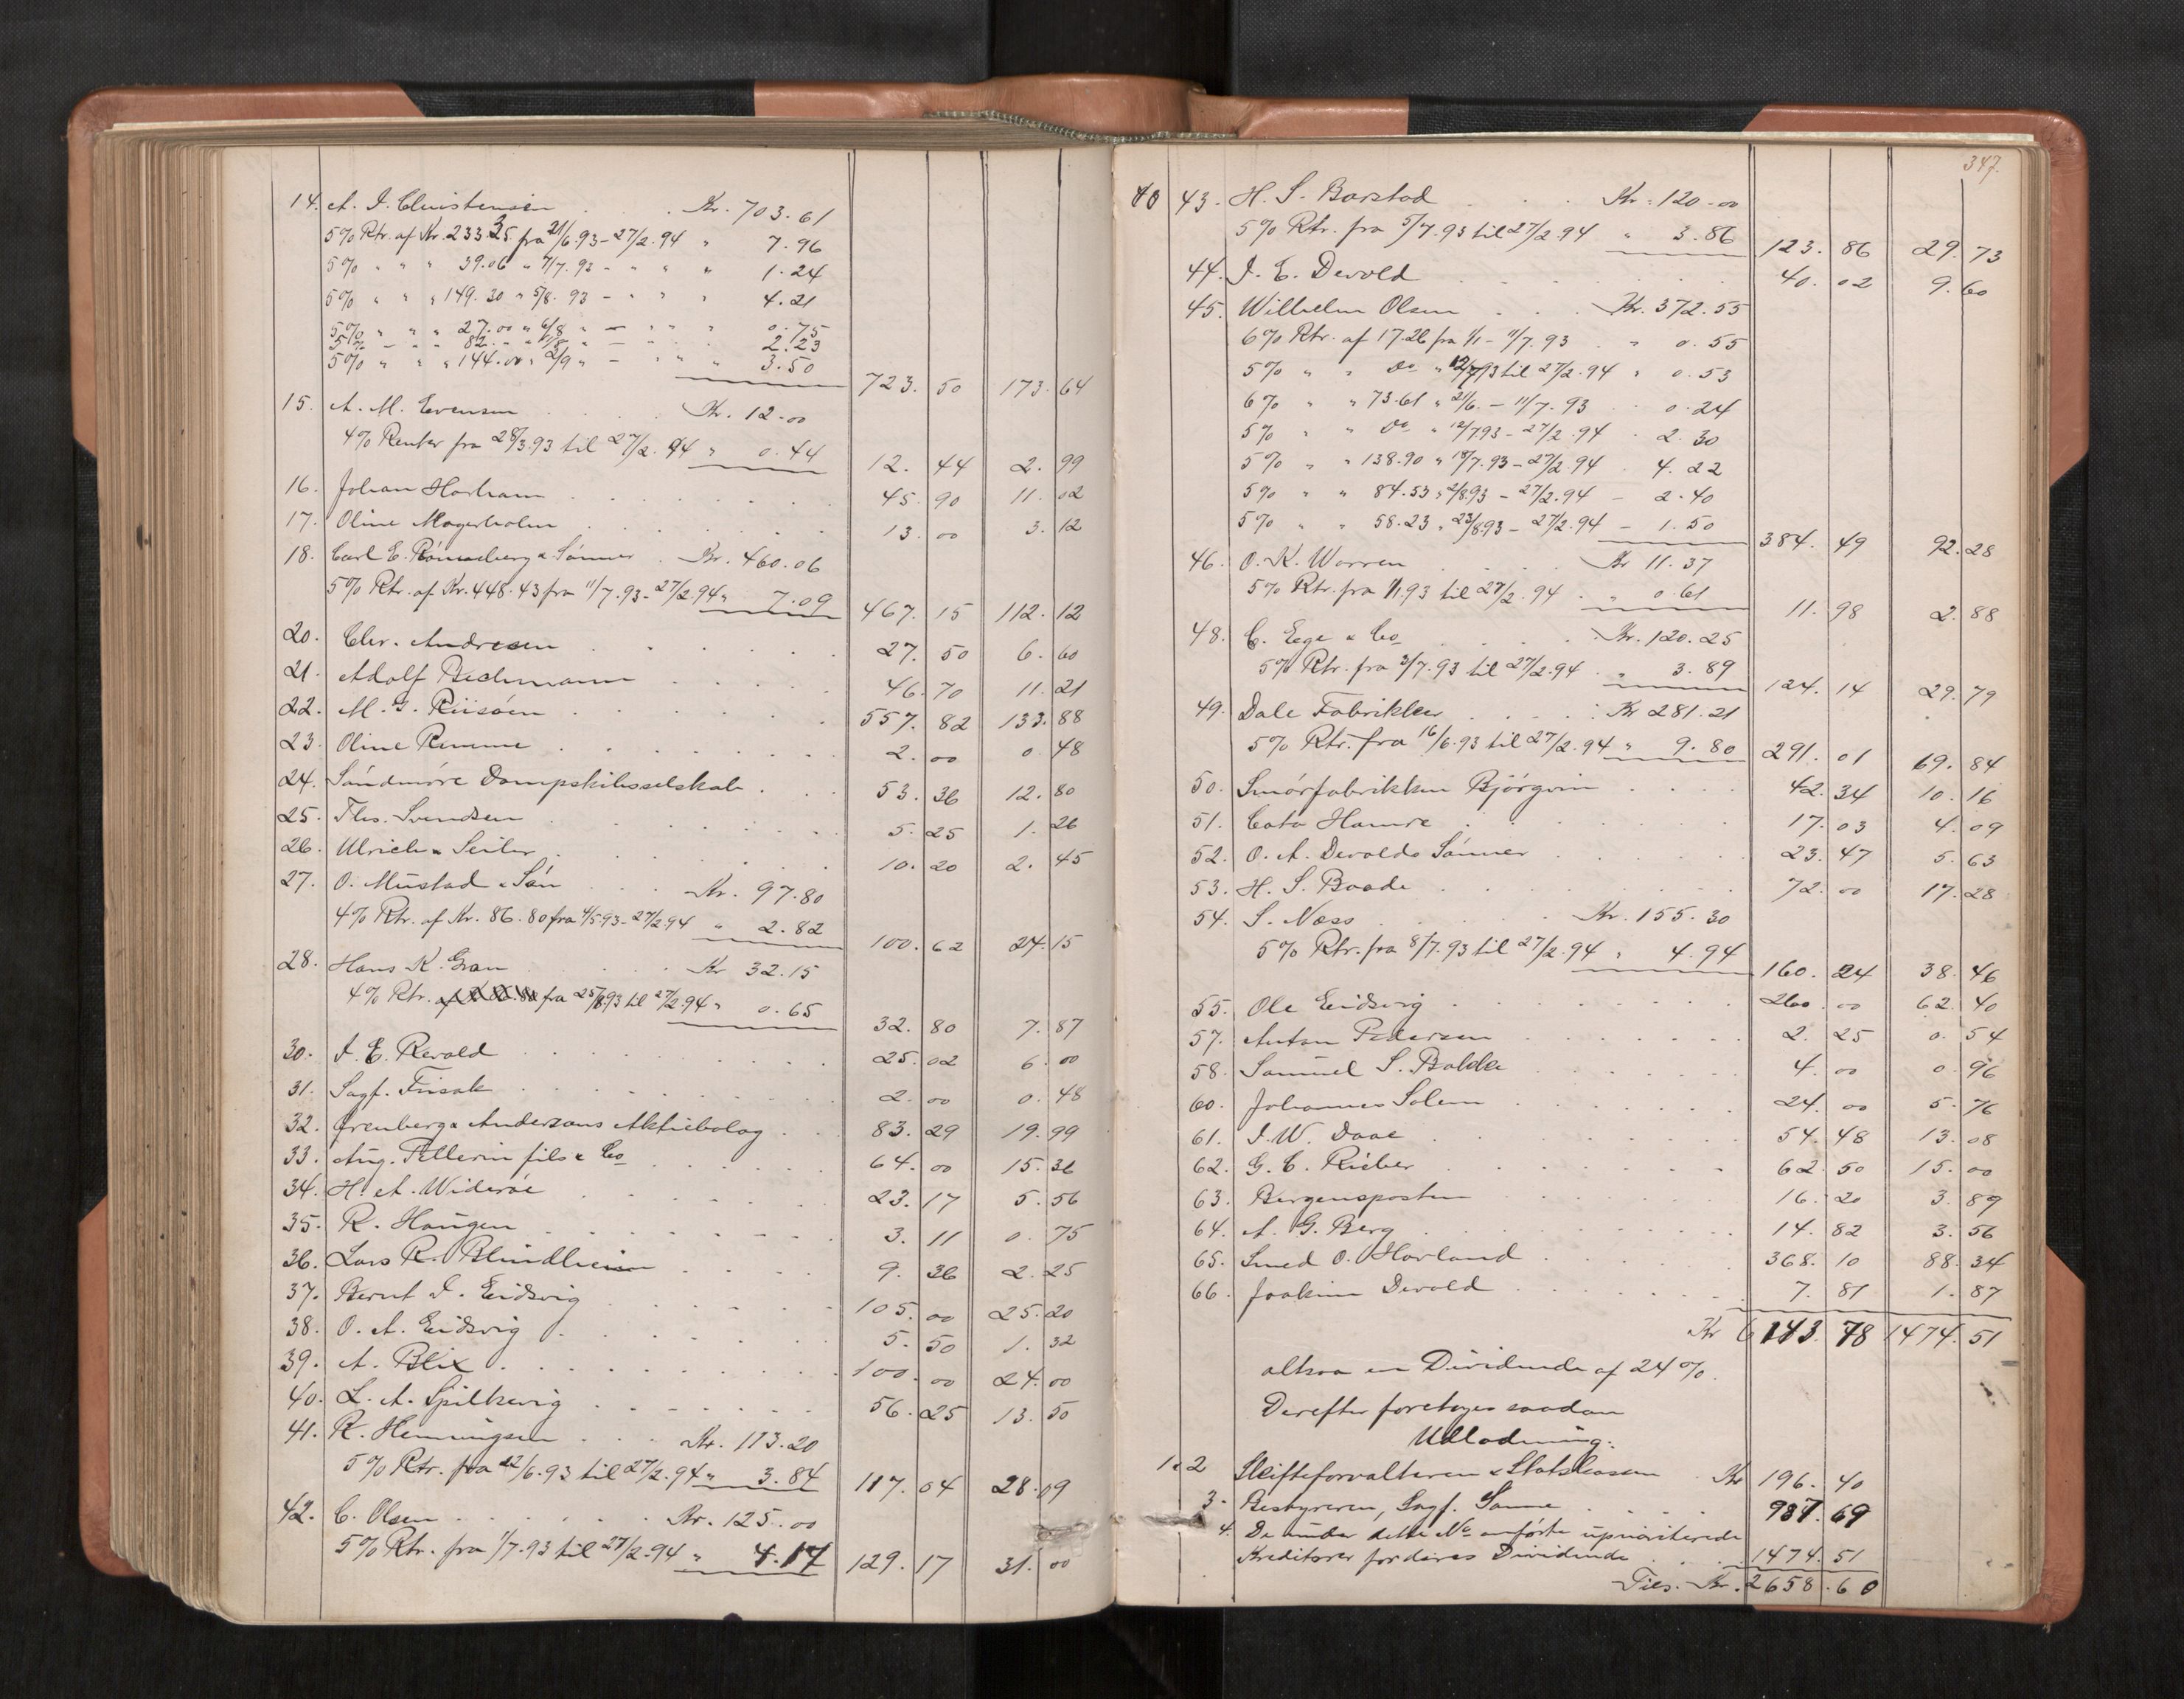 14. A. J. Christensen . . . Kr. 703.61
5% Rtr. af Kr. 233.35 fra 21/6.93 - 27/2.94 " 7.96
5% " " " 39.06 " 7/7.93 - " " " 1.24
5% " " " 149.30 " 5/8.93 - " " " 4.21
5% " " " 27.00 " 6/8 " - " " " 0.75
5% " " " 82. " " 11/8 " - " " " 2.23
5% " " " 144.00 " 2/9 " - " " " 3.50 723.50 173.64
15. A. M. Evensen . . . Kr. 12.00
4% Renter fra 28/3.93 til 27/2.94 " 0.44 12.44 2.99
16. Johan Horham . . . 45.90 11.02
17. Oline Magerholm . . . 13.00 3.12
18. Carl E. Rönneberg & Sönner . Kr. 460.06
5% Rtr. af Kr. 448.43 fra 11/7.93 - 27/2.94 " 7.09 467.15 112.12
20. Chr. Andresen . . . 27.50 6.60
21. Adolf Bechmann . . . 46.70 11.21
22. M. G. Riisöen . . . 557.82 133.88
23. Oline Remme . . . 2.00 0.48
24. Söndmöre Dampskibsselskab . . . 53.36 12.80
25. Ths. Svendsen . . . 5.25 1.26
26. Ulrich & Seiler . . . 10.20 2.45
27. O. Mustad & Sön . . . Kr. 97.80
4% Rtr. af Kr. 86.80 fra 4/5 93 - 27/2 94 " 2.82 100.62 24.15
28. Hans K. Gran . . . Kr 32.15
4% Rtr. fra 25/8 93 til 27/2.94 " 0.65 32.80 7.87
30. J. E. Revold . . . 25.02 6.00
31. Sagf. Frisak . . . 2.00 0.48
32. Örenberg & Anderzons Aktiebolag . . . 83.29 19.99
33. Aug. Pellerin fils & Co . . . 64.00 15.36
34. H. A. Wideröe . . . 23.17 5.56
35. R. Haugen . . . 3.11 0.75
36. Lars R. Blindheim . . . 9.36 2.25
37. Bernt J. Eidsvig . . . 105.00 25.20
38. O. A. Eidsvig . . . 5.50 1.32
39. A. Blix . . . 100.00 24.00
40. L. A. Spilkevig . . . 56.25 13.50
41. R. Henningsen . . . Kr. 113.20
5% Rtr. fra 22/6.93 til 27/2.94 " 3.84 117.04 28.09
42. C. Olsen . . . Kr. 125.00
5% Rtr. fra 1/7.93 til 27/2.94 " 4.17 129.17 31.00
347.
43. H. S. Barstad . . . Kr. 120.00
5% Rtr. fra 5/7.93 til 27/2.94 " 3.86 123.86 29.73
44. J. E. Devold . . . 40.02 9.60
45. Wilhelm Olsen . . . Kr. 372.55
6% Rtr. af 17.26 fra 1/1 - 11/7.93 . " 0.55
5% " " do " 12/7 93 til 27/2.94 " 0.53
6% " " 73.61 " 21/6. - 11/7.93 . 0.24
5% " " do " 12/7 93 - 27/2.94 . 2.30
5% " " 138.90 " 18/7.93 - 27/2.94 . 4.22
5% " " 84.53 " 2/8 93 - 27/2.94 - 2.40
5% " " 58.23 " 23/8 93 - 27/2.94 - 1.50 384.49 92.28
46. O. K. Warren . . . Kr 11.37
5% Rtr. fra 1/1.93 til 27/2.94 . " 0.61 11.98 2.88
48. C. Ege & Co . . . Kr. 120.25
5% Rtr. fra 3/7.93 til 27/2.94 . " 3.89 124.14 29.79
49. Dale Fabrikker . . . Kr 281.21
5% Rtr. fra 16/6.93 til 27/2.94 " 9.80 291.01 69.84
50. Smörfabrikken Björgvin . . . 42.34 10.16
51. Cato Hamre . . . 17.03 4.09
52. O. A. Devolds Sönner . . . 23.47 5.63
53. H. S. Baade . . . 72.00 17.28
54. S. Næss . . . Kr. 155.30
5% Rtr. fra 8/7.93 til 27/2.94 " 4.94 160.24 38.46
55. Ole Eidsvig . . . 260.00 62.40
57. Anton Pedersen . . . 2.25 0.54
58. Samuel S. Bakke . . . 4.00 0.96
60. Johannes Solem . . . 24.00 5.76
61. J. W. Daae . . . 54.48 13.08
62. G. C. Rieber . . . 62.50 15.00
63. Bergensposten . . . 16.20 3.89
64. A. G. Berg . . . 14.82 3.56
65. Smed O. Havland . . . 368.10 88.34
66. Joakim Devold . . . 7.81 1.87
Kr 6143.78 1474.51
altsaa en Dividende af 24%.
Derefter foretages saadan
Udlodning:
1 & 2 Skifteforvalteren & Statskassen . Kr 196.40
3. Bestyreren, Sagf. Sanne . . . 987.69
4. De under dette No anførte upriviterede
Kreditorer for deres Dividende . . . 1474.51
Tils. Kr. 2658.60